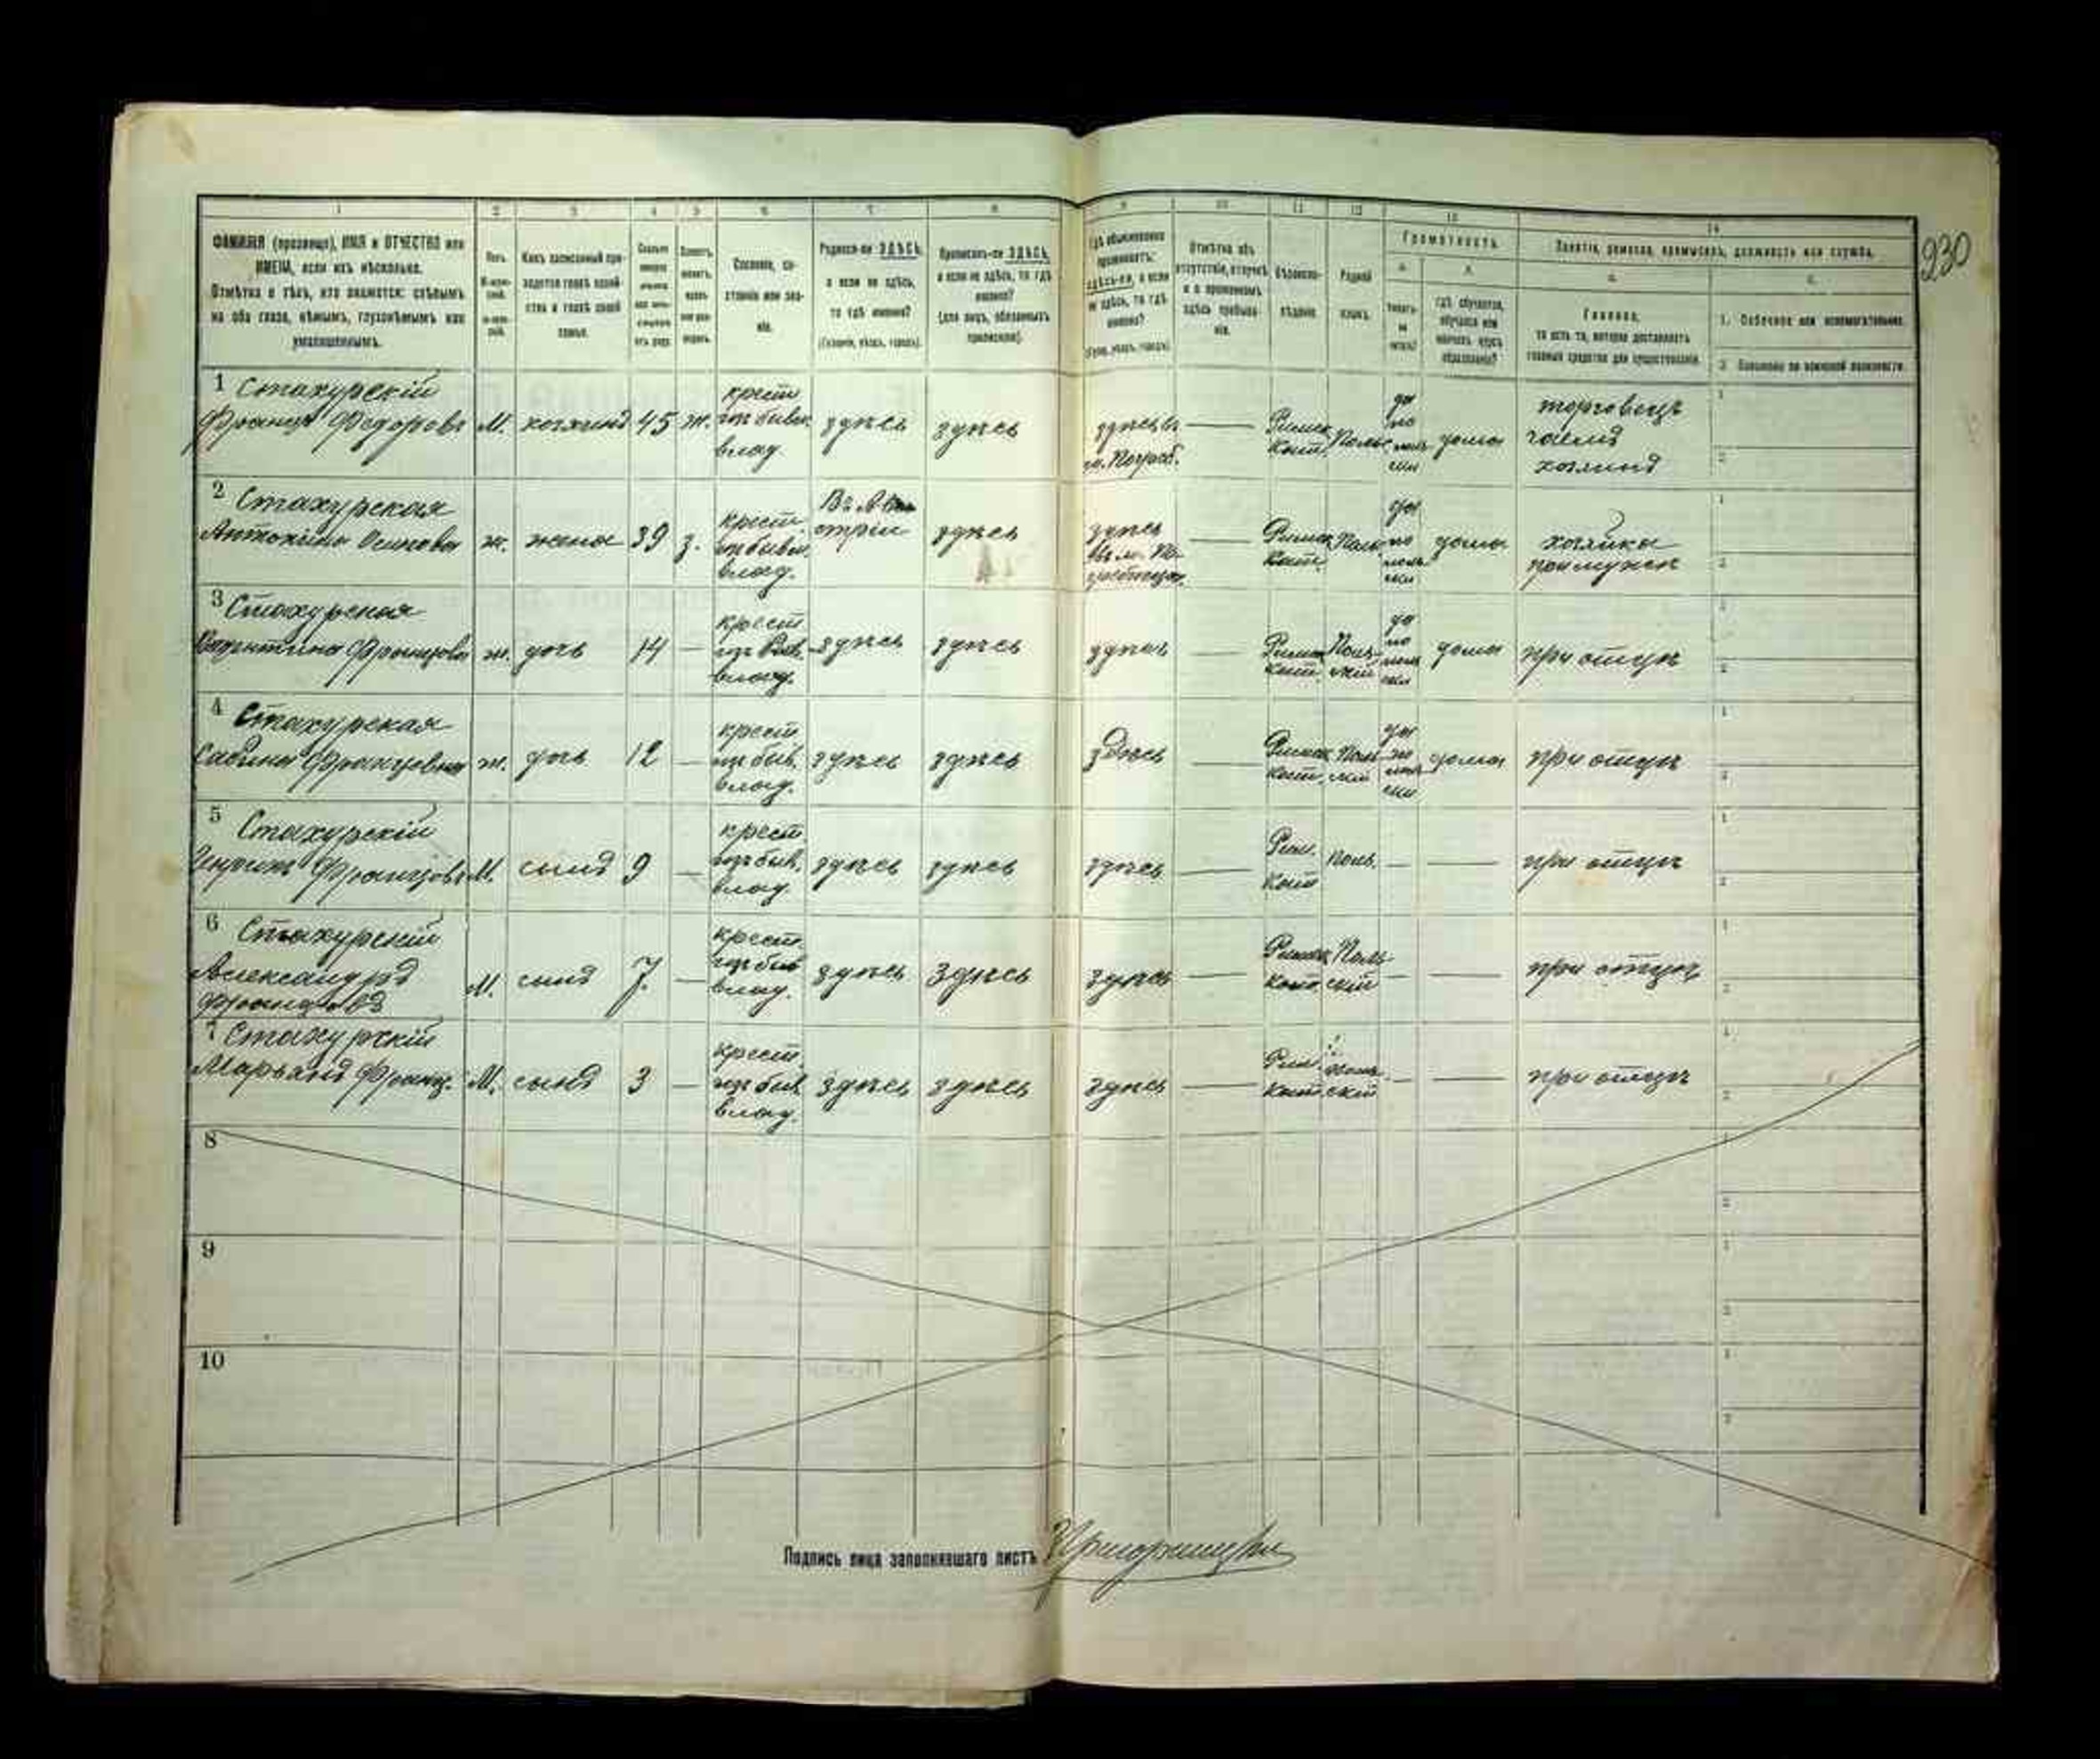 230
1 2 3 4 5 6 7 8 9 10 11 12 13 14
ФАМИЛІЯ (прозвище), ИМЯ и ОТЧЕСТВО или
ИМЕНА, если ихъ нѣсколько.
Отмѣтка о тѣхъ, кто окажется: слѣпымъ
на оба глаза, нѣмымъ, глухонѣмымъ или
умалишеннымъ.
Полъ.
Какъ записанный при-
ходится главѣ хозяй-
ства и главѣ своей
семьи.
Сословіе, со-
стояніе или зва-
ніе.
Родился-ли ЗДѢСЬ,
а если не здѣсь,
то гдѣ именно?
(Губернія, уѣздъ, городъ).
Приписанъ-ли ЗДѢСЬ,
а если не здѣсь, то гдѣ
именно?
(для лицъ, обязанныхъ
припискою).
Гдѣ обыкновенно
проживаетъ:
здѣсь-ли, а если
не здѣсь, то гдѣ
именно?
(Губ., уѣздъ, городъ).
Отмѣтка объ
отсутствіи, отлучкѣ
и о временномъ
здѣсь пребыва-
ніи.
Вѣроиспо-
вѣданіе.
Родной
языкъ.
Грамотность.
а.
Умѣетъ-
ли
читать?
б.
гдѣ обучается,
обучался или
кончилъ курсъ
образованія?
Занятіе, ремесло, промыселъ, должность или служба.
а.
Главное,
то есть то, которое доставляетъ
главныя средства для существованія.
1. Побочное или вспомогательное.
2. Положеніе по воинской повинности.
1 Стахурскій
Францъ Федоровъ М. хозяинъ 45 ж. крест. изъ бывш. влад. здѣсь здѣсь здѣсь въ м. Погреб. — Римск. Кат. Поль. да по поль ски дома торговецъ
хозяинъ
2 Стахурская
Антонина Осипова ж. жена 39 з. крест. изъ бывш. влад. Въ Ав
стріи здѣсь здѣсь — Римск Кат. Поль. да по поль ски дома хозяйка
при мужѣ
3 Стахурская
Валентина Францова ж. дочь 14 — крест. изъ быв. влад. здѣсь здѣсь здѣсь — Римск Кат. Поль- скій да по поль ски дома при отцѣ
4 Стахурская
Сабина Францовна ж. дочь 12 — крест. изъ быв. влад. здѣсь здѣсь здѣсь — Римск Кат. Поль скій да по поль ски дома при отцѣ
5 Стахурскій
Генрихъ Францовъ М. сынъ 9 — крест. изъ быв. влад. здѣсь здѣсь здѣсь — Рим. Кат. Поль. — — при отцѣ
6 Стахурскій
Александръ
Францовъ М. сынъ 7. — крест. изъ быв. влад. здѣсь здѣсь здѣсь — Римск Кат. Поль- скій — — при отцѣ
7 Стахурскій
Марьянъ Франц. М. сынъ 3 — крест. изъ быв. влад. здѣсь здѣсь здѣсь — Рим. Кат. Поль- скій — — при отцѣ
8
9
10
Подпись лица заполнявшаго листъ